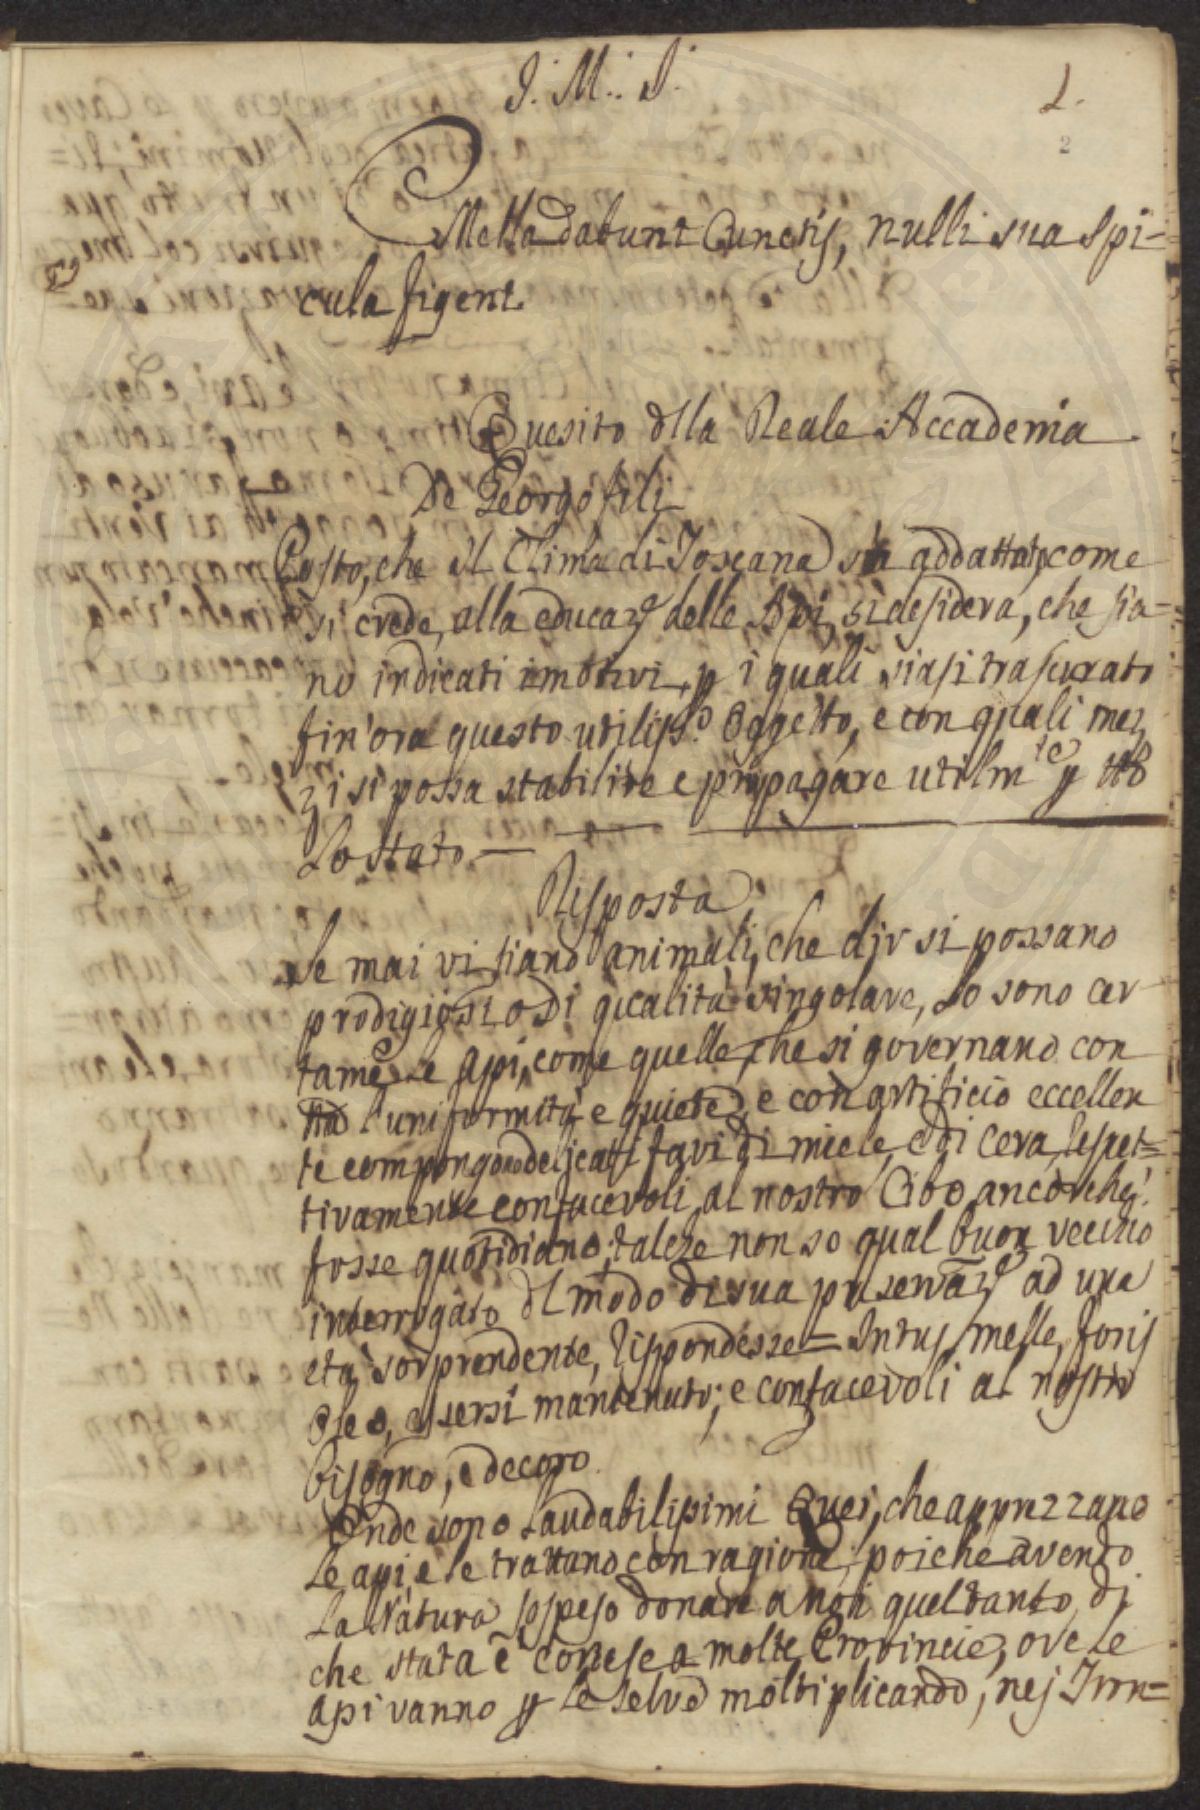 J. M. J.
1.
2
Mella dabunt Cunctis, nulli sua Spi-
cula figent
Quesito della Reale Accademia
De Georgofili
Posto, che il Clima di Toscana sia addattato, come
si crede, alla educaz.e delle Api, si desidera, che sia=
no indicati i motivi p i quali siasi trascurato
fin'ora questo utiliss.o Oggetto, e con quali mez
zi si possa stabilire e propagare utilm.te p tto
Lo stato. —
Risposta
Se mai vi siano animali, che dir si possano
prodigiosi o di qualità singolare, Lo sono cer
tame.e Le Api, come quelle, che si governano con
tta l'uniformità e quiete, e con artificio eccellen
te compongono delicati favi di miele, e di cera, respet=
tivamente confacevoli al nostro Cibo, ancorchè
fosse quotidiano, talche non so qual buon vecchio
interrogato del modo di sua preservaz.e ad una
età sorprendente, rispondesse = Intus melle, foris
Oleo, essersi mantenuto; e confacevoli al nostro
bisogno, e decoro.
Onde sono Laudabilissimi Quei, che apprezzano
Le api, e le trattano con ragione, poichè avendo
La Natura sospeso donare a noi quel tanto, di
che stata è cortese a molte Provincie, ove Le
api vanno p Le selve moltiplicando, nei Tron=